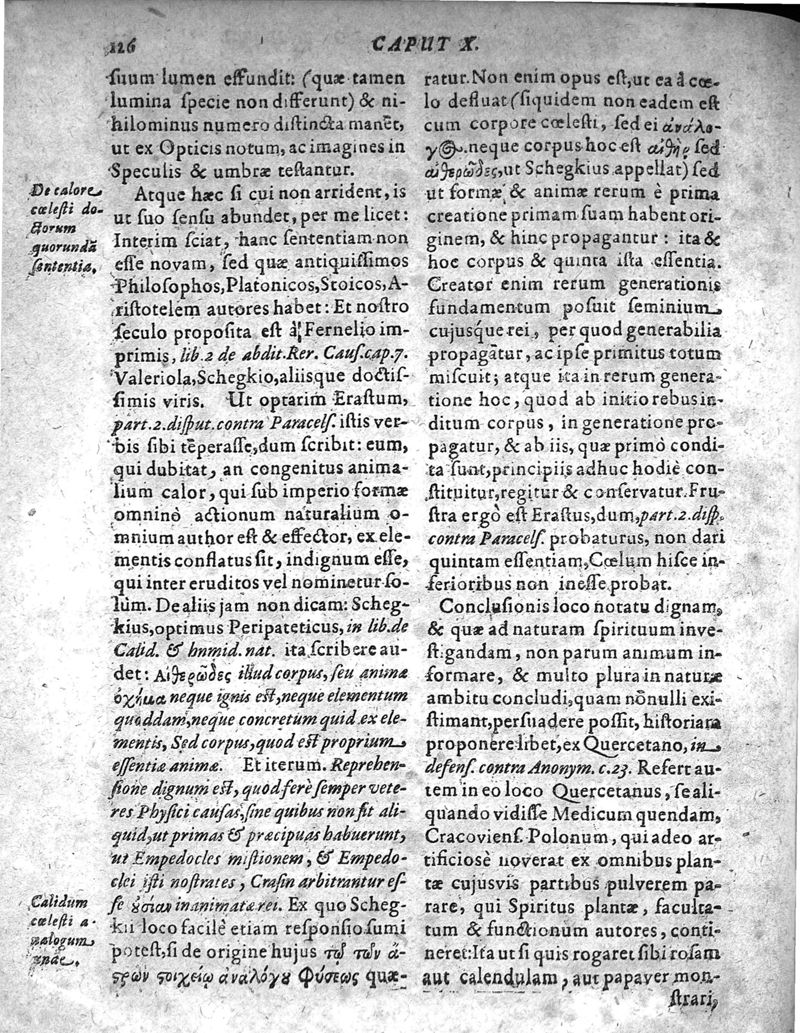 126
CAPUT X.
suum lumen effundit: (quæ tamen
lumina specie non differunt) & ni-
hilominus numero distincta manẽt,
ut ex Opticis notum, ac imagines in
Speculis & umbræ testantur.
De calore
cœlesti do-
ctorum
quorundã
sententiæ.
Atque hæc si cui non arrident, is
ut suo sensu abundet, per me licet:
Interim sciat, hanc sententiam non
esse novam, sed quæ antiquissimos
Philosophos, Platonicos, Stoicos, A-
ristotelem autores habet: Et nostro
seculo proposita est à Fernelio im-
primis, lib. 2 de abdit. Rer. Caus. cap. 7.
Valeriola, Schegkio, aliisque doctis-
simis viris. Ut optarim Erastum,
part. 2. disput. contra Paracels. istis ver-
bis sibi tẽperasse, dum scribit: eum,
qui dubitat, an congenitus anima-
lium calor, qui sub imperio formæ
omninò actionum naturalium o-
mnium author est & effector, ex ele-
mentis conflatus sit, indignum esse,
qui inter eruditos vel nominetur so-
lùm. De aliis jam non dicam: Scheg-
kius, optimus Peripateticus, in lib. de
Calid. & humid. nat. ita scribere au-
det: Αἰθερῶδες illud corpus, seu animæ
ὄχημα neque ignis est, neque elementum
quoddam, neque concretum quid ex ele-
mentis, Sed corpus, quod est proprium
essentiæ animæ. Et iterum. Reprehen-
sione dignum est, quod ferè semper vete-
res Physici causas, sine quibus non fit ali-
quid, ut primas & præcipuas habuerunt,
ut Empedocles mistionem, & Empedo-
clei isti nostrates, Crasin arbitrantur es-
se οὐσίαν inanimatæ rei. Ex quo Scheg-
kii loco facilè etiam responsio sumi
potest, si de origine hujus τῷ τῶν ἄ-
στρων στοιχείῳ ἀναλόγου φύσεως quæ-
Calidum
cœlesti a-
nalogum
unde.
ratur. Non enim opus est, ut ea à cœ-
lo defluat (siquidem non eadem est
cum corpore cœlesti, sed ei ἀνάλο-
γος neque corpus hoc est αἰθὴρ sed
αἰθερῶδες, ut Schegkius appellat) sed
ut formæ & animæ rerum è prima
creatione primam suam habent ori-
ginem, & hinc propagantur: ita &
hoc corpus & quinta ista essentia.
Creator enim rerum generationis
fundamentum posuit seminium
cujusque rei, per quod generabilia
propagãtur, ac ipse primitus totum
miscuit; atque ita in rerum genera-
tione hoc, quod ab initio rebus in-
ditum corpus, in generatione pro-
pagatur, & ab iis, quæ primò condi-
ta sunt, principiis adhuc hodiè con-
stituitur, regitur & conservatur. Fru-
stra ergò est Erastus, dum, part. 2. disp.
contra Paracels. probaturus, non dari
quintam essentiam, Cœlum hisce in-
ferioribus non inesse probat.
Conclusionis loco notatu dignam,
& quæ ad naturam spirituum inve-
stigandam, non parum animum in-
formare, & multo plura in naturæ
ambitu concludi, quam nõnulli exi-
stimant, persuadere possit, historiam
proponere libet, ex Quercetano, in
defens. contra Anonym. c. 23. Refert au-
tem in eo loco Quercetanus, se ali-
quando vidisse Medicum quendam,
Cracoviens. Polonum, qui adeo ar-
tificiosè noverat ex omnibus plan-
tæ cujusvis partibus pulverem pa-
rare, qui Spiritus plantæ, faculta-
tum & functionum autores, conti-
neret: Ita ut si quis rogaret sibi rosam
aut calendulam, aut papaver mon-
strari,